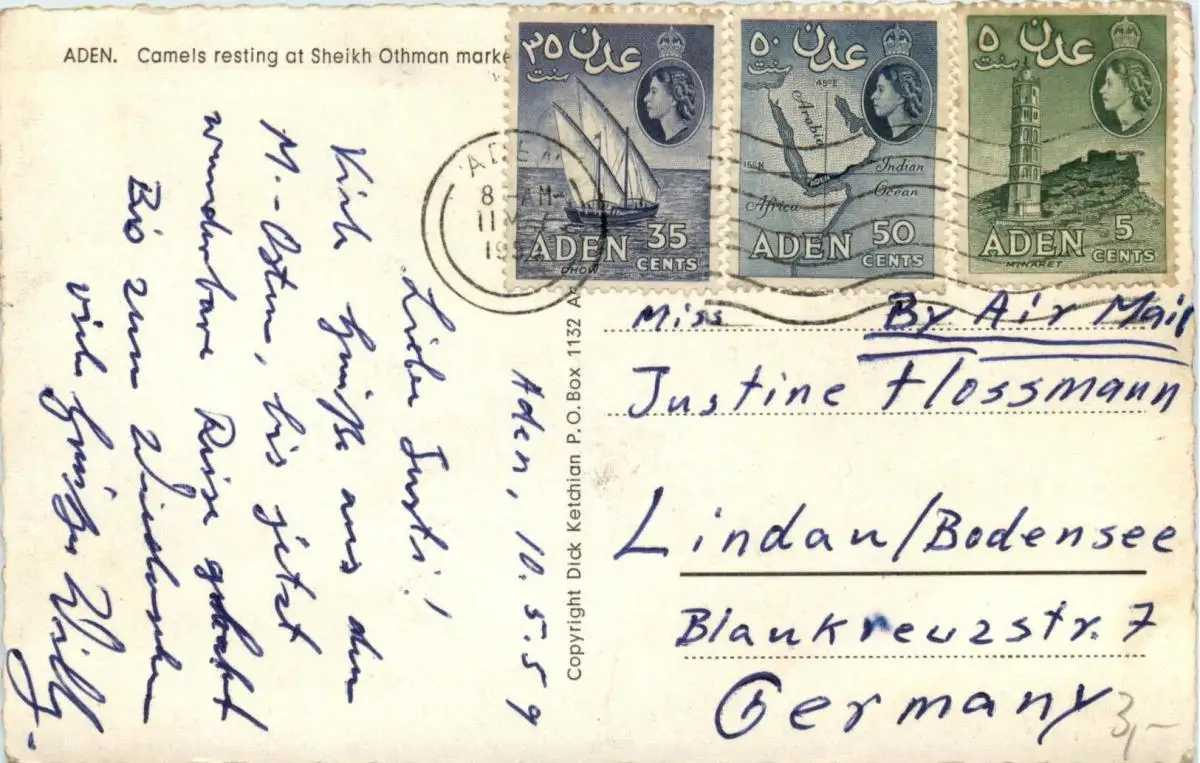 ADEN. Camels resting at Sheikh Othman marke
٣٥ عدن
سنت
ADEN 35
CENTS
DHOW
٥٠ عدن
سنت
45°E
Arabia
15°N
ADEN
Indian
Ocean
Africa
ADEN 50
CENTS
٥ عدن
سنت
ADEN 5
MINARET CENTS
ADEN
8 - AM -
11 M
195
Aden, 10.5.59
Liebe Justi!
Viele Grüße aus dem
M.-Osten, bis jetzt
wunderbare Reise gehabt
Bis zum Wiedersehen
viele Grüße Willy
Copyright Dick Ketchian P.O. Box 1132 A
Miss By Air Mail
Justine Flossmann
Lindau/Bodensee
Blaukreuzstr. 7
Germany
3,-